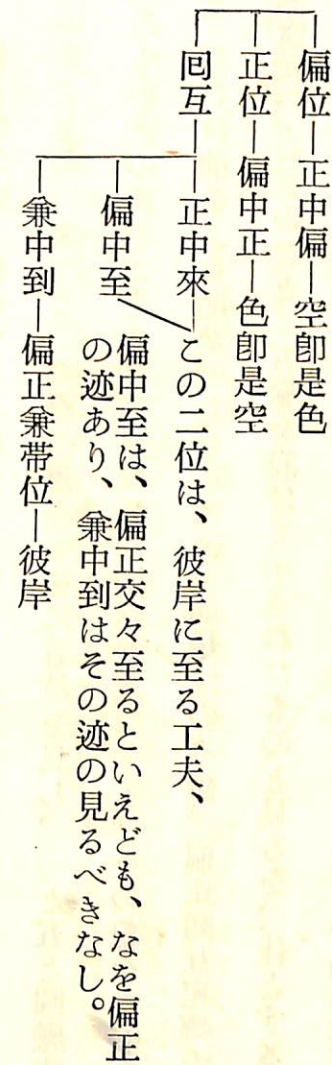 偏位—正中偏—空卽是色
正位—偏中正—色卽是空
回互—正中來—この二位は、彼岸に至る工夫、
偏中至
偏中至は、偏正交々至るといえども、なを偏正
の迹あり、兼中到はその迹の見るべきなし。
兼中到—偏正兼帯位—彼岸